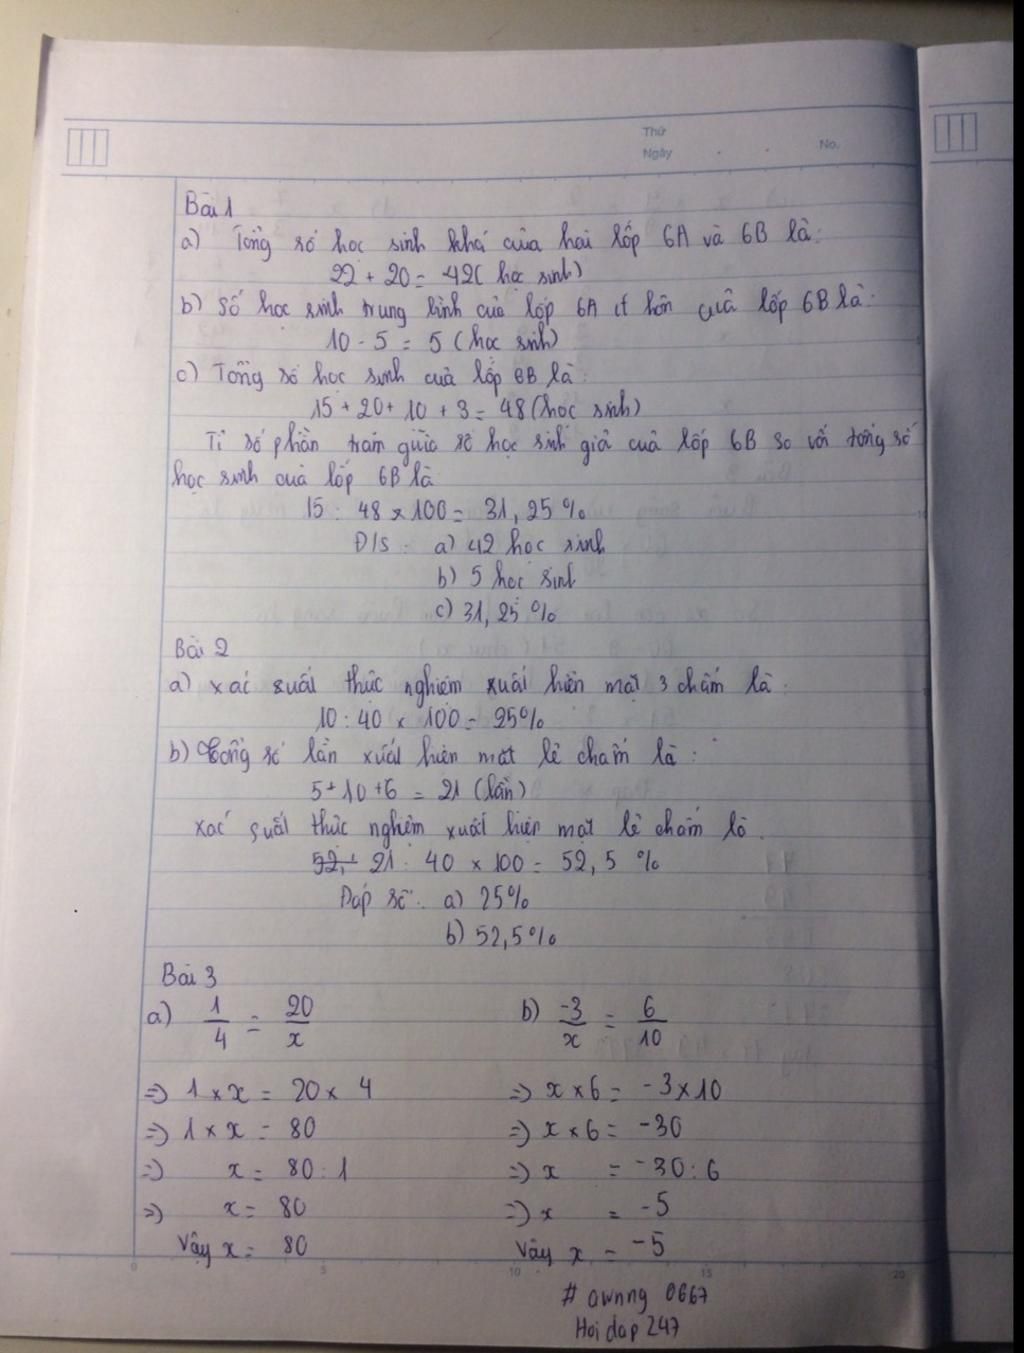 Thứ
Ngày
No.
Bài 1
a) Tổng số học sinh khá của hai lớp 6A và 6B là:
22 + 20 = 42 (học sinh)
b) Số học sinh trung bình của lớp 6A ít hơn cuả lớp 6B là:
10 - 5 = 5 (học sinh)
c) Tổng số học sinh cuả lớp 6B là:
15 + 20 + 10 + 3 = 48 (học sinh)
Tỉ số phần trăm giữa số học sinh giỏi cuả lớp 6B so với tổng số
học sinh cuả lớp 6B là
15 : 48 x 100 = 31,25 %
Đ/S : a) 42 học sinh
b) 5 học sinh
c) 31,25 %
Bài 2
a) xác suất thực nghiệm xuất hiện mặt 3 chấm là :
10 : 40 x 100 = 25%
b) Tổng số lần xuất hiện mặt lẻ chấm là :
5 + 10 + 6 = 21 (lần)
xác suất thực nghiệm xuất hiện mặt lẻ chấm là
52, 21 : 40 x 100 = 52,5 %
Đáp số : a) 25%
b) 52,5%
Bài 3
a) 1/4 = 20/x b) -3/x = 6/10
=> 1 x x = 20 x 4 => x x 6 = -3 x 10
=> 1 x x = 80 => x x 6 = -30
=> x = 80 : 1 => x = -30 : 6
=> x = 80 => x = -5
Vậy x = 80 Vậy x = -5
0 5 10 15 20
# awnng 0667
Hoidap247